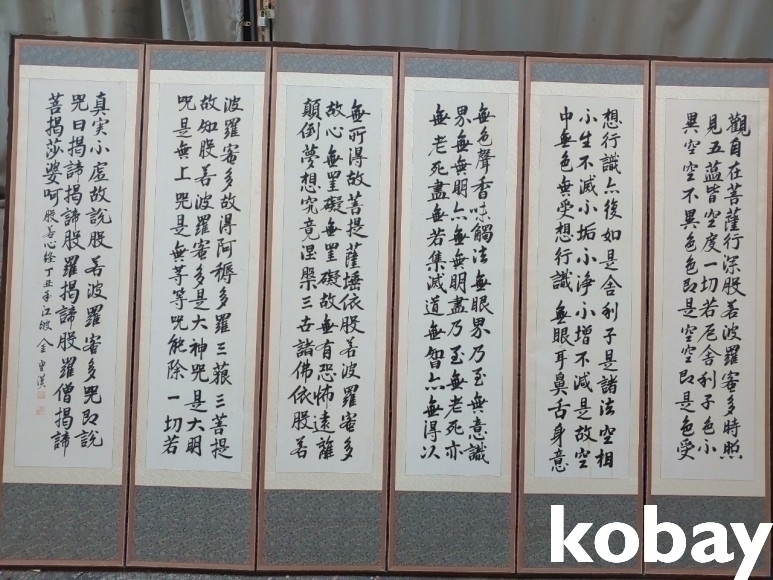 觀自在菩薩行深般若波羅蜜多時照
見五蘊皆空度一切苦厄舍利子色不
異空空不異色色即是空空即是色受
想行識亦復如是舍利子是諸法空相
不生不滅不垢不淨不增不減是故空
中無色無受想行識無眼耳鼻舌身意
無色聲香味觸法無眼界乃至無意識
界無無明亦無無明盡乃至無老死亦
無老死盡無苦集滅道無智亦無得以
無所得故菩提薩埵依般若波羅蜜多
故心無罣礙無罣礙故無有恐怖遠離
顛倒夢想究竟涅槃三世諸佛依般若
波羅蜜多故得阿耨多羅三藐三菩提
故知般若波羅蜜多是大神咒是大明
咒是無上咒是無等等咒能除一切苦
真実不虛故說般若波羅蜜多咒即說
咒曰揭諦揭諦般羅揭諦般羅僧揭諦
菩揭莎婆呵 般若心經 丁丑年 江坡 金
kobay